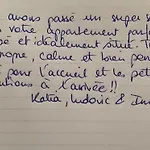 avons passé un super s
votre appartement parf
pé et idéalement situé. T
propre, calme et bien pen
pour l'accueil et les pet
utions à l'arrivée !!
Katia, Ludovic &